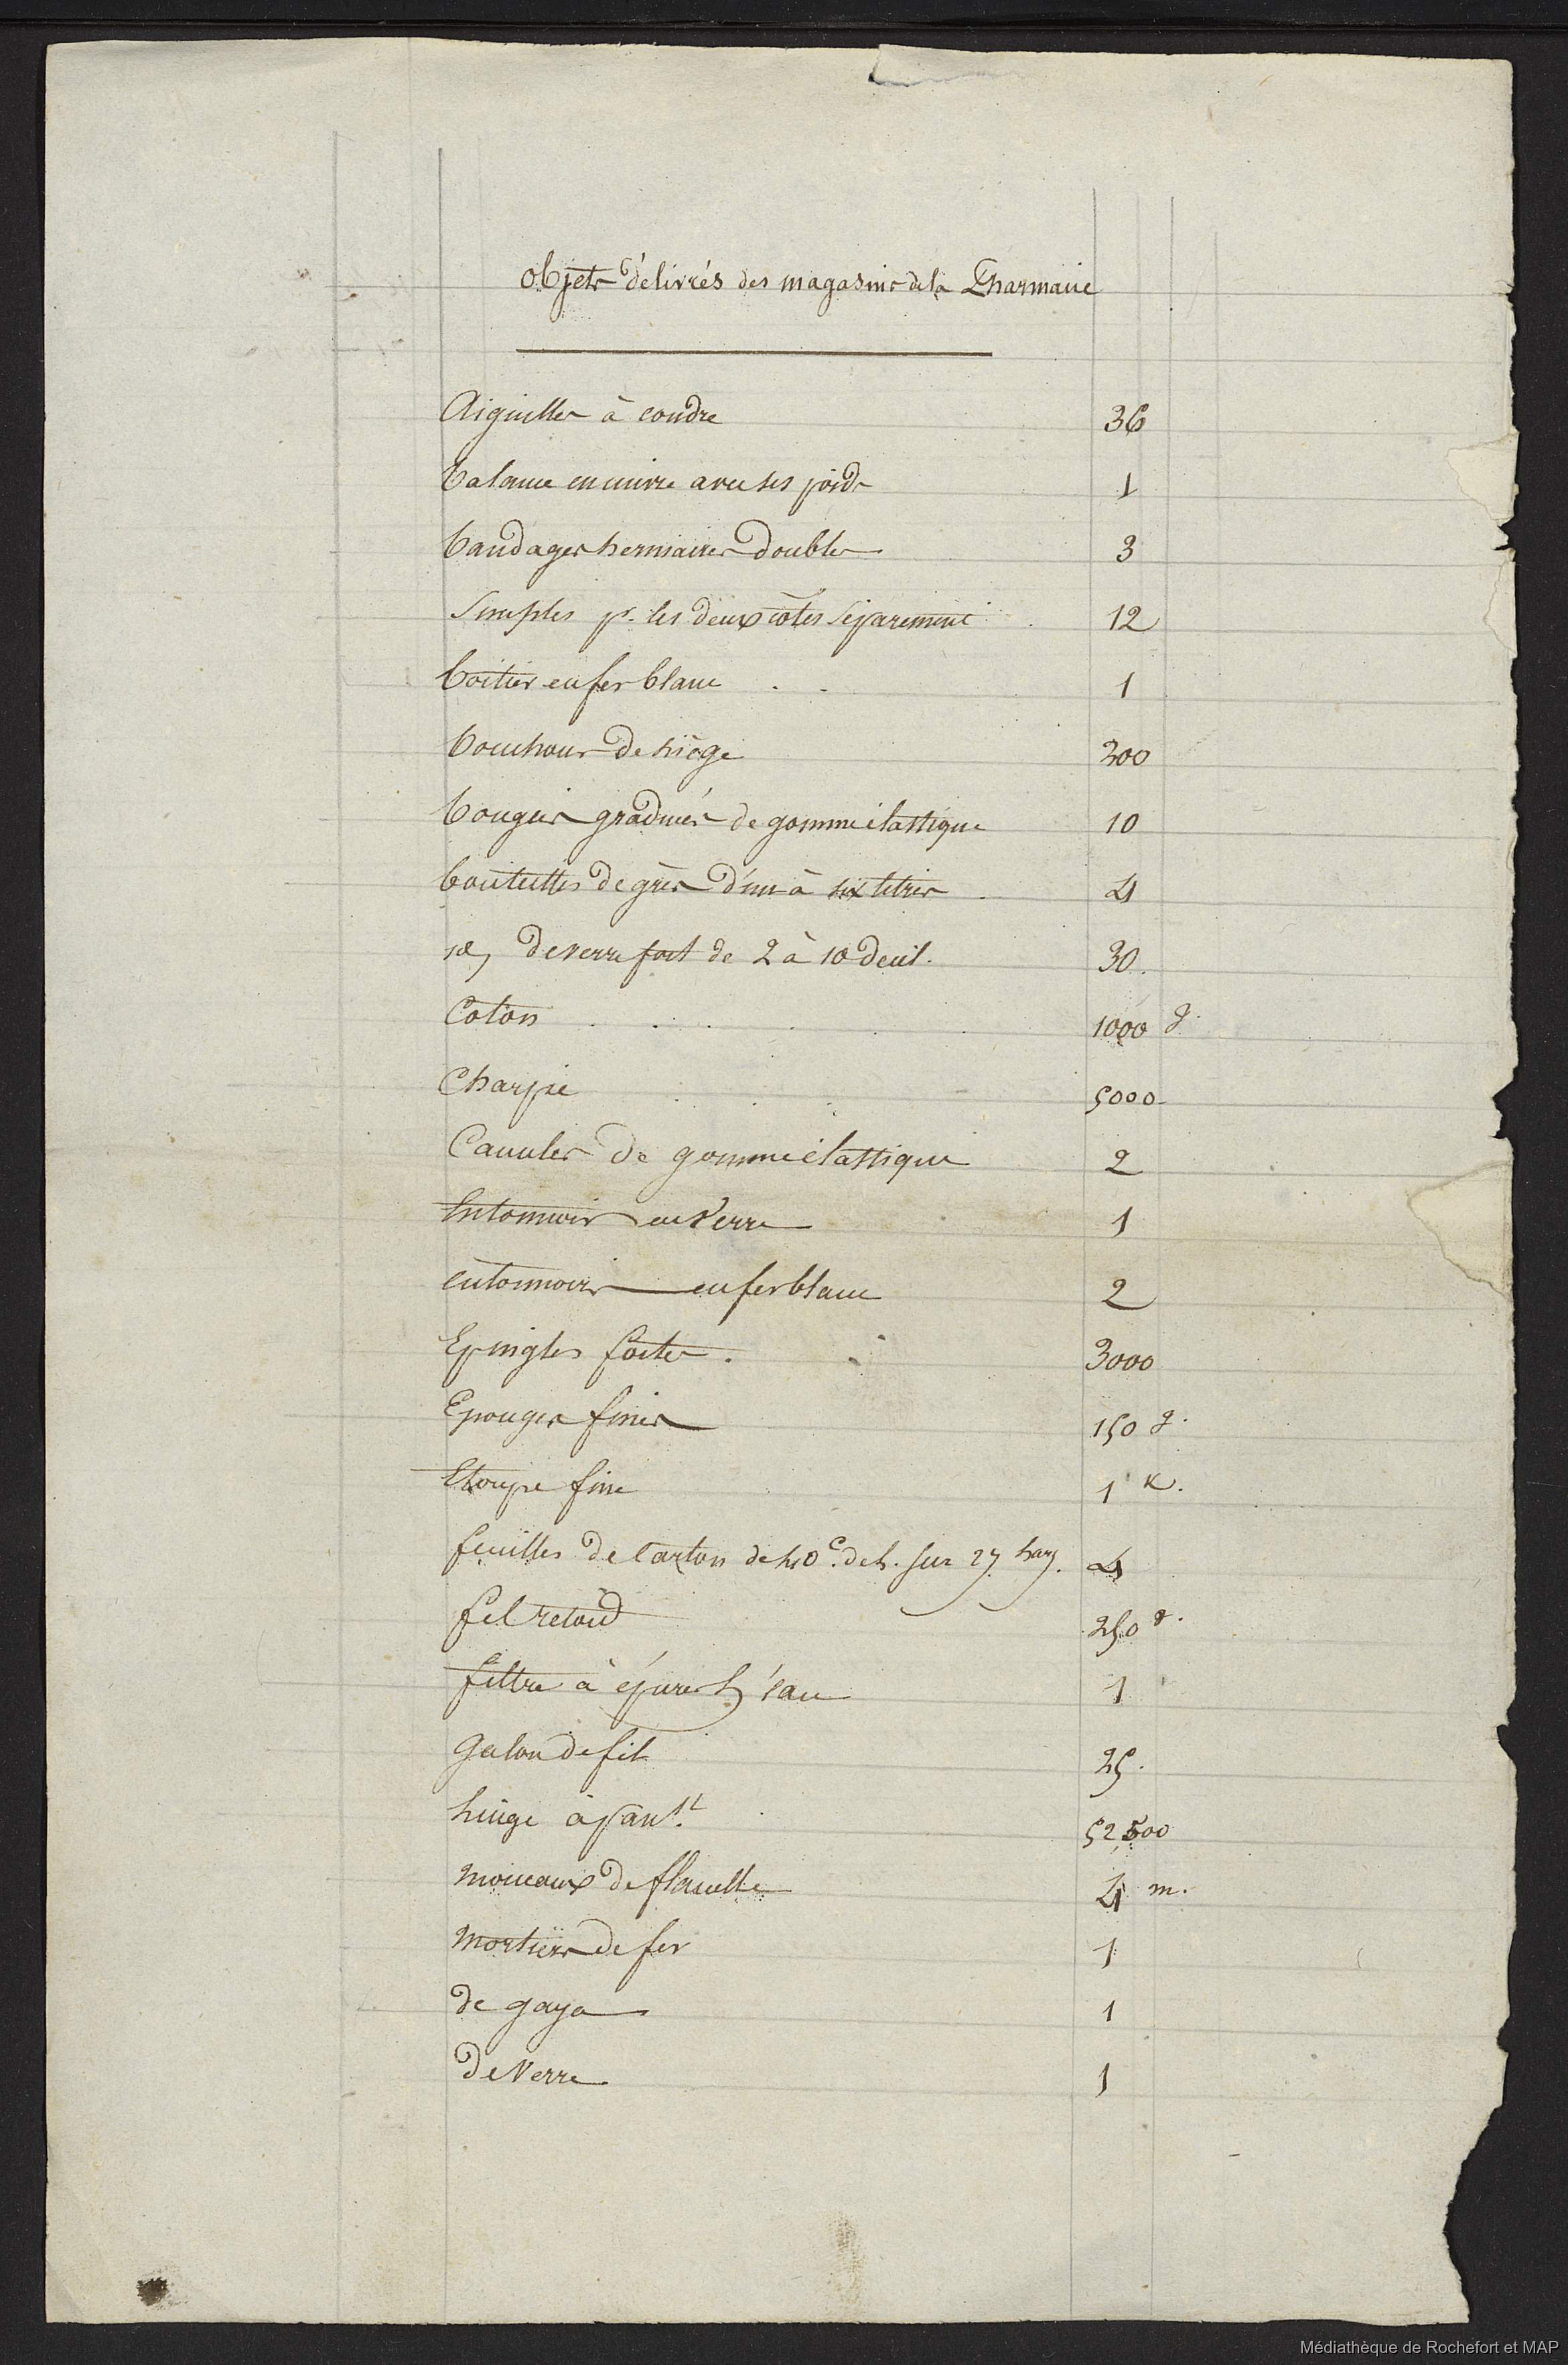 Objets délivrés des magasins de la Pharmacie
Aiguilles à coudre 36
balance en cuivre avec ses poids 1
bandages herniaires doubles 3
Simples pr. les deux côtés séparement 12
boitier en fer blanc 1
bouchons de liège 300
bougies graduées de gomme élastique 10
bouteilles de grès d'un à six litres 4
id, de verre fort de 2 à 10 decil. 30.
Coton 1000 g.
Charpie 5000
Canules de gomme élastique 2
Entonnoir en verre 1
entonnoirs en fer blanc 2
Epingles fortes. 3000
Eponges fines 150 g.
Etoupe fine 1 K.
feuilles de Carton de 40 c. de h. sur 27 larg. 4
fil retord 250 g.
filtre à épurer l'eau 1
galon de fil 25.
linge à panst. 52,500
morceaux de flanelle 4 m.
mortiers de fer 1
de gaya 1
de verre 1
Médiathèque de Rochefort et MAP